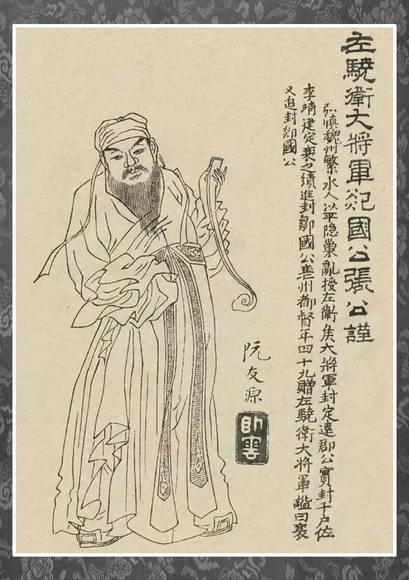 左驍衛大將軍郯國公張公謹
弘慎魏州繁水人以平隱巢亂授左衛矦大將軍封定遠郡公實封千戶佐
李靖建定襄之績進封鄒國公襄州都督年四十九贈左驍衛大將軍謚曰襄
又追封郯國公
阮友源